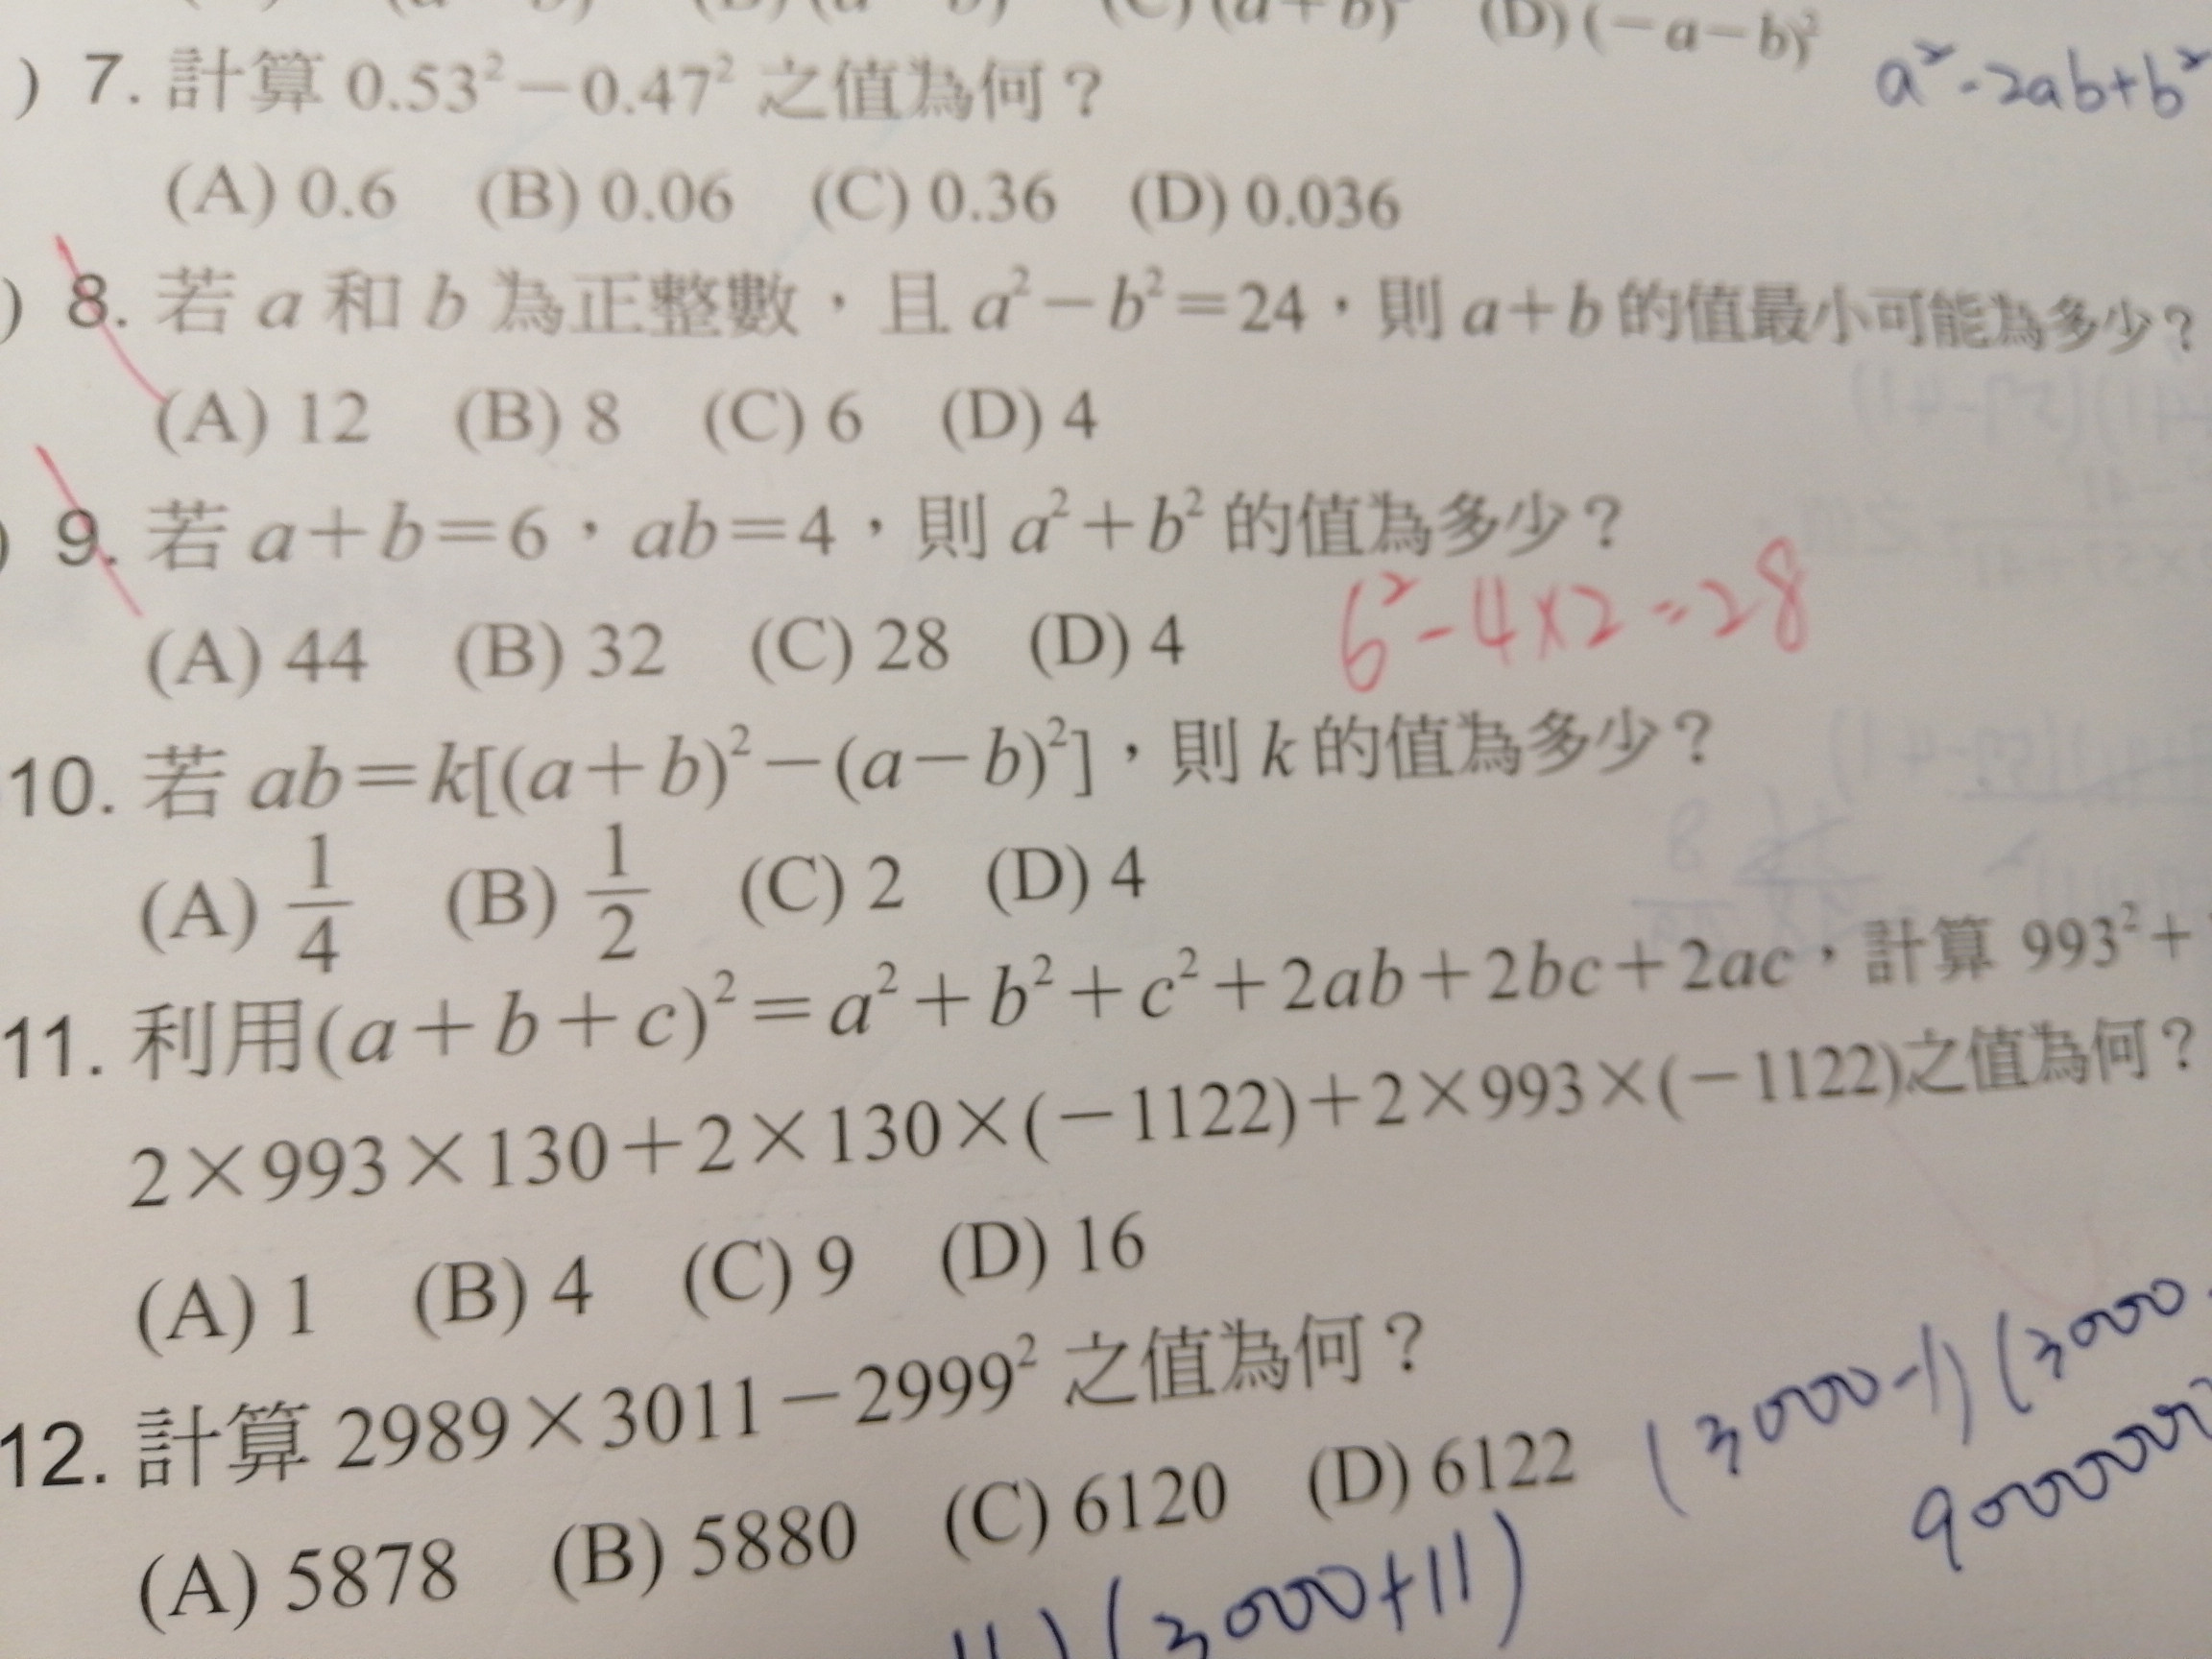 (D) (－a－b)²
) 7. 計算 0.53²－0.47² 之值為何？
a²-2ab+b²
(A) 0.6 (B) 0.06 (C) 0.36 (D) 0.036
) 8. 若 a 和 b 為正整數，且 a²－b²＝24，則 a＋b 的值最小可能為多少？
(A) 12 (B) 8 (C) 6 (D) 4
) 9. 若 a＋b＝6，ab＝4，則 a²＋b² 的值為多少？
6²-4×2=28
(A) 44 (B) 32 (C) 28 (D) 4
10. 若 ab＝k[(a＋b)²－(a－b)²]，則 k 的值為多少？
(A) 1/4 (B) 1/2 (C) 2 (D) 4
11. 利用(a＋b＋c)²＝a²＋b²＋c²＋2ab＋2bc＋2ac，計算 993²＋
2×993×130＋2×130×(－1122)＋2×993×(－1122)之值為何？
(A) 1 (B) 4 (C) 9 (D) 16
12. 計算 2989×3011－2999² 之值為何？
(3000-1)(3000
(A) 5878 (B) 5880 (C) 6120 (D) 6122
11)(3000+11)